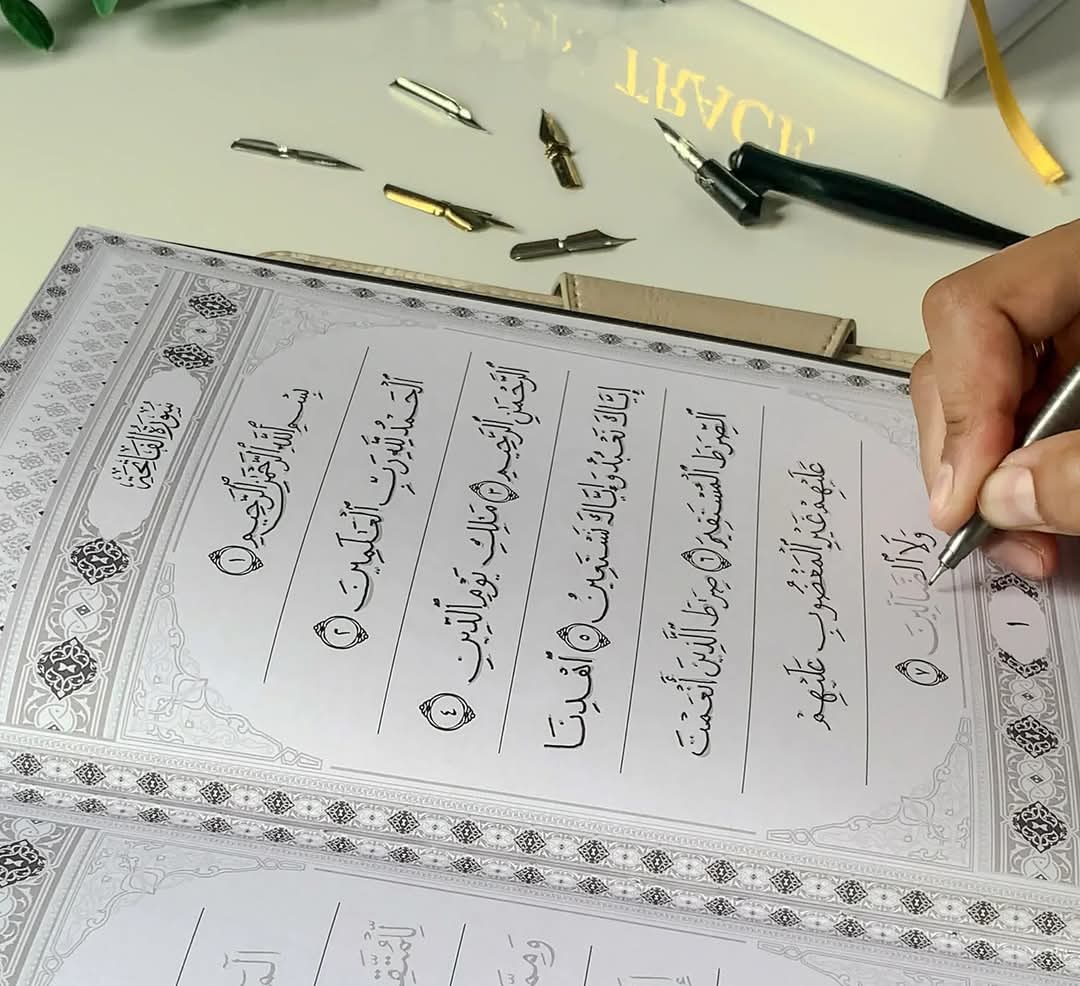 TRACE
سُورَةُ الْفَاتِحَةِ
بِسْمِ ٱللَّهِ ٱلرَّحْمَٰنِ ٱلرَّحِيمِ ١
ٱلْحَمْدُ لِلَّهِ رَبِّ ٱلْعَٰلَمِينَ ٢
ٱلرَّحْمَٰنِ ٱلرَّحِيمِ ٣ مَٰلِكِ يَوْمِ ٱلدِّينِ ٤
إِيَّاكَ نَعْبُدُ وَإِيَّاكَ نَسْتَعِينُ ٥ ٱهْدِنَا
ٱلصِّرَٰطَ ٱلْمُسْتَقِيمَ ٦ صِرَٰطَ ٱلَّذِينَ أَنْعَمْتَ
عَلَيْهِمْ غَيْرِ ٱلْمَغْضُوبِ عَلَيْهِمْ
وَلَا ٱلضَّآلِّينَ ٧
١